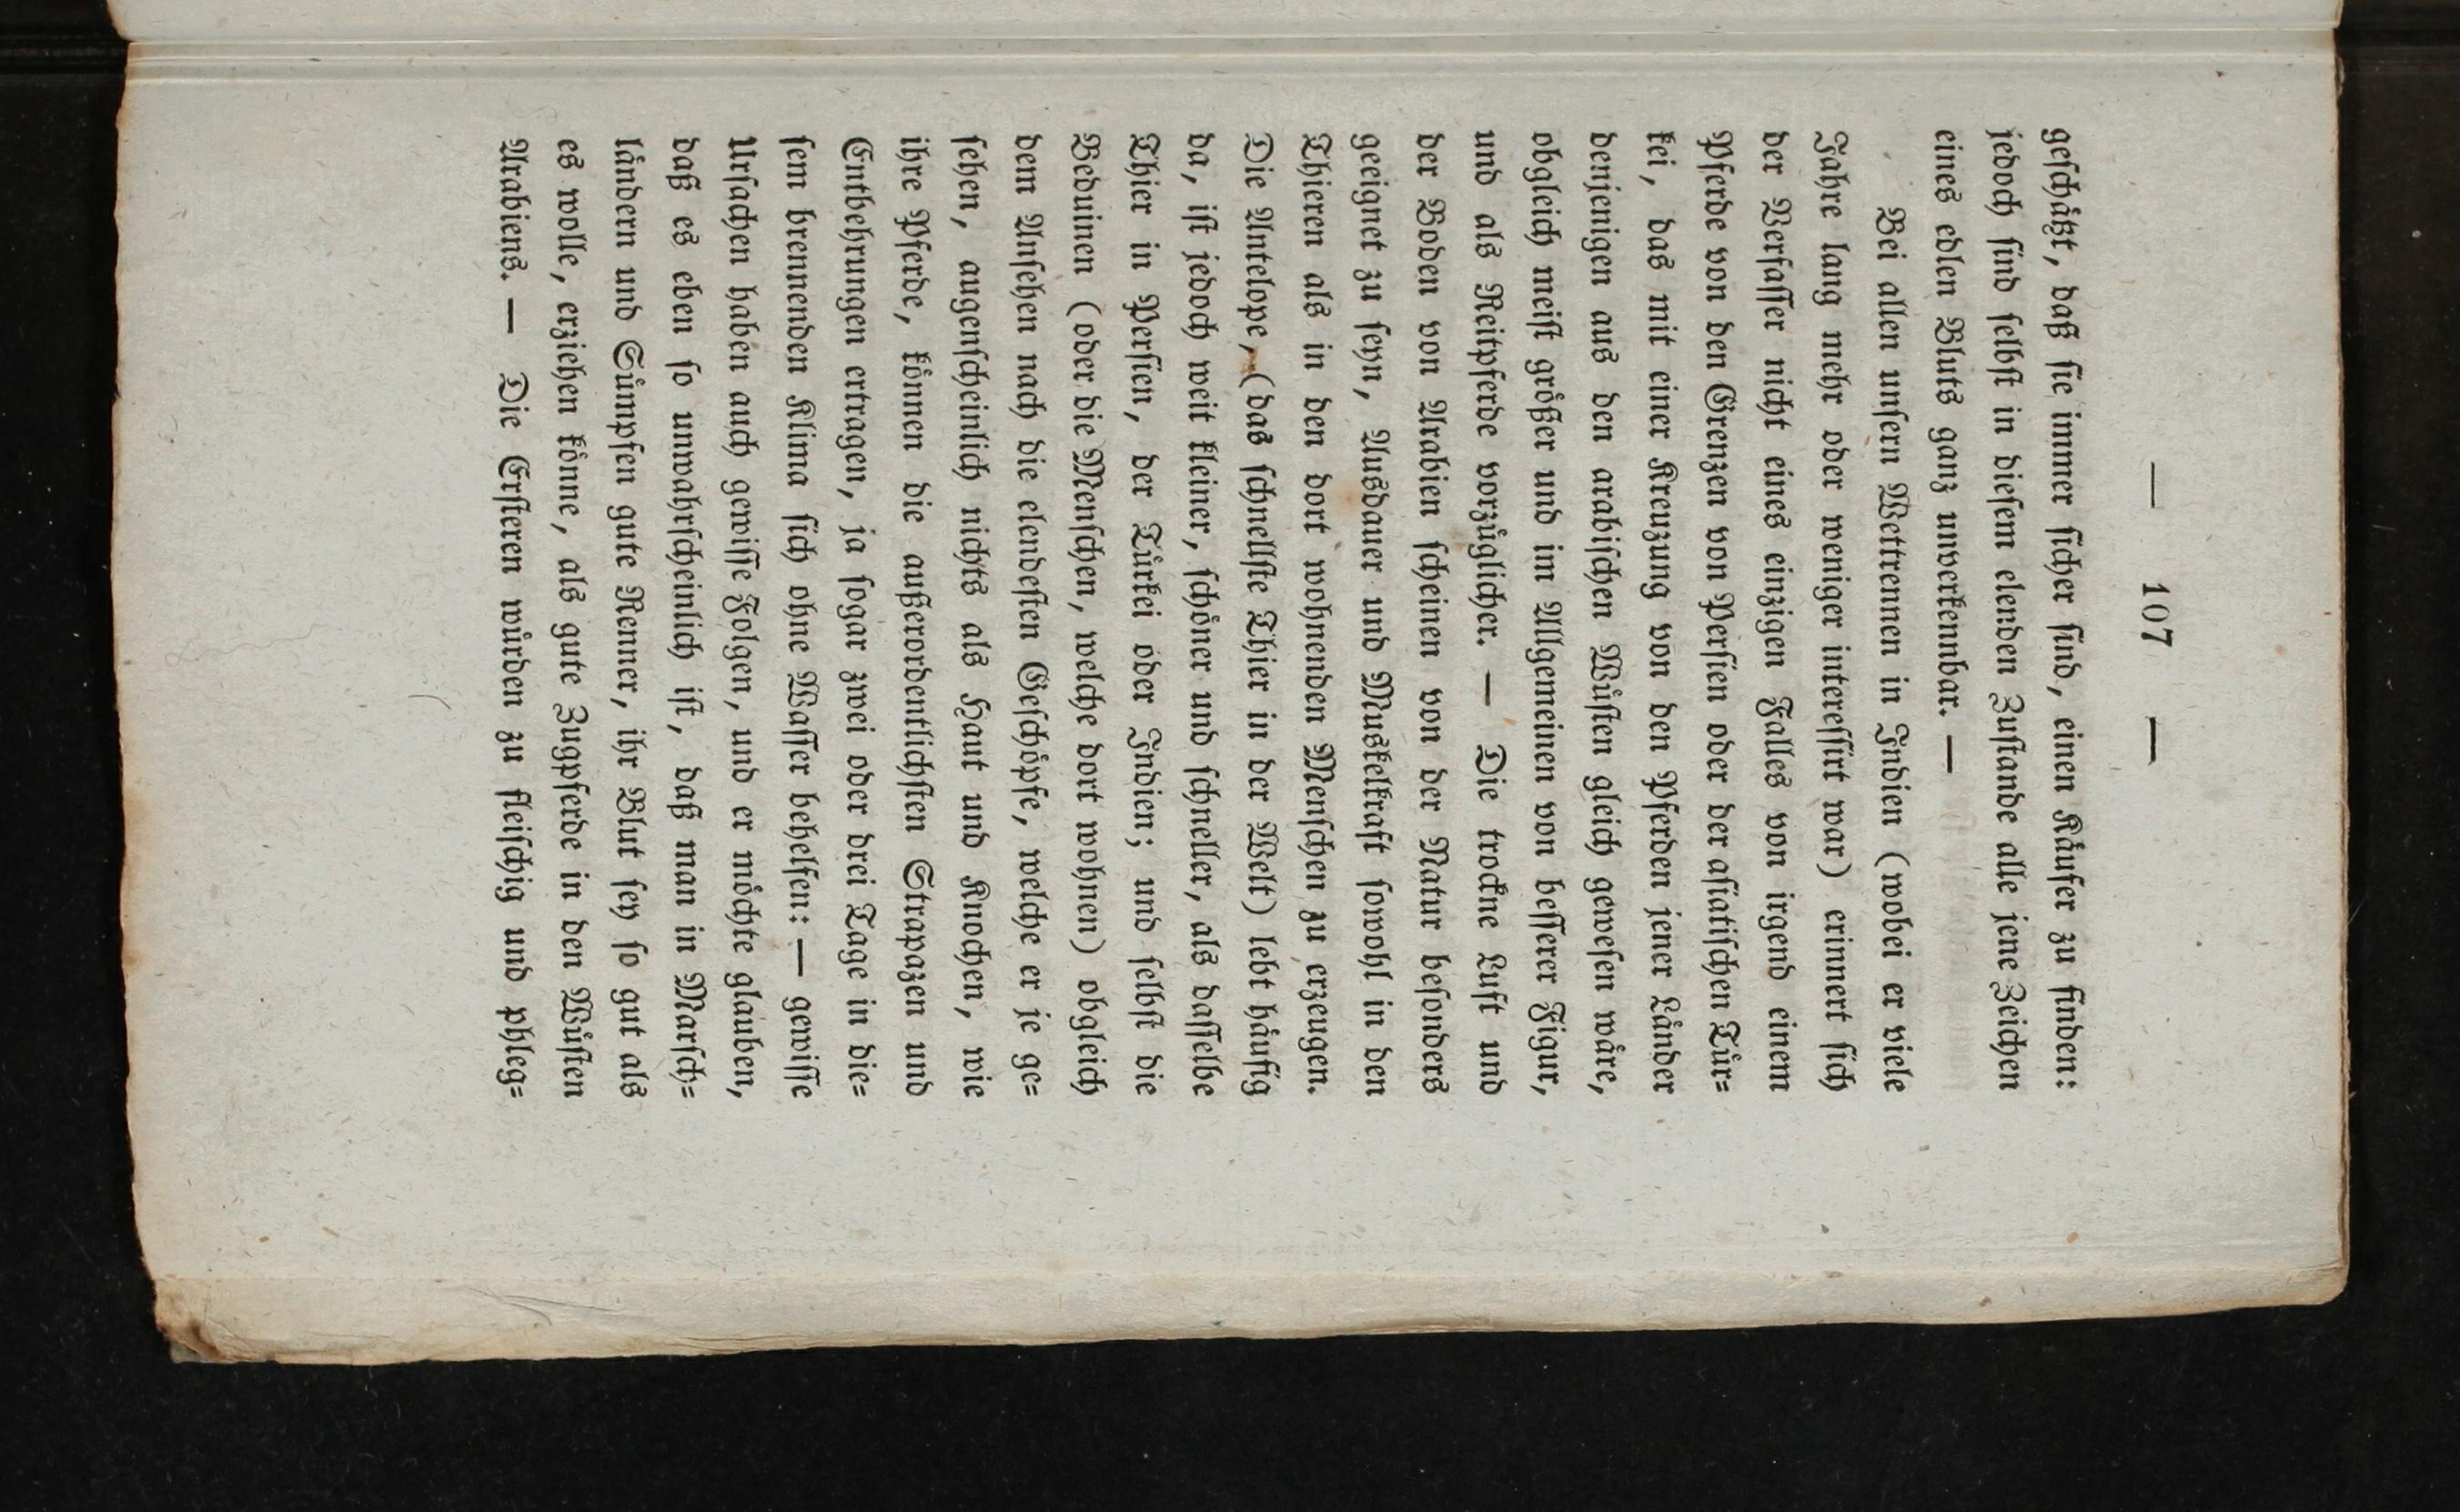 — 107 —
geſchätzt, daß ſie immer ſicher ſind, einen Käufer zu finden:
jedoch ſind ſelbſt in dieſem elenden Zuſtande alle jene Zeichen
eines edlen Bluts ganz unverkennbar. —
Bei allen unſern Wettrennen in Indien (wobei er viele
Jahre lang mehr oder weniger intereſſirt war) erinnert ſich
der Verfaſſer nicht eines einzigen Falles von irgend einem
Pferde von den Grenzen von Perſien oder der aſiatiſchen Tür=
kei, das mit einer Kreuzung von den Pferden jener Länder
denjenigen aus den arabiſchen Wüſten gleich geweſen wäre,
obgleich meiſt größer und im Allgemeinen von beſſerer Figur,
und als Reitpferde vorzüglicher. — Die trockne Luft und
der Boden von Arabien ſcheinen von der Natur beſonders
geeignet zu ſeyn, Ausdauer und Muskelkraft ſowohl in den
Thieren als in den dort wohnenden Menſchen zu erzeugen.
Die Antelope, (das ſchnellſte Thier in der Welt) lebt häufig
da, iſt jedoch weit kleiner, ſchöner und ſchneller, als daſſelbe
Thier in Perſien, der Türkei oder Indien; und ſelbſt die
Beduinen (oder die Menſchen, welche dort wohnen) obgleich
dem Anſehen nach die elendeſten Geſchöpfe, welche er je ge=
ſehen, augenſcheinlich nichts als Haut und Knochen, wie
ihre Pferde, können die außerordentlichſten Strapazen und
Entbehrungen ertragen, ja ſogar zwei oder drei Tage in die=
ſem brennenden Klima ſich ohne Waſſer behelfen: — gewiſſe
Urſachen haben auch gewiſſe Folgen, und er möchte glauben,
daß es eben ſo unwahrſcheinlich iſt, daß man in Marſch=
ländern und Sümpfen gute Renner, ihr Blut ſey ſo gut als
es wolle, erziehen könne, als gute Zugpferde in den Wüſten
Arabiens. — Die Erſteren würden zu fleiſchig und phleg=